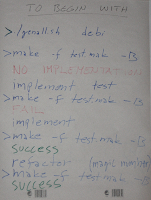 TO BEGIN WITH
> ./genall.sh debi
> make -f test.mak -B
NO IMPLEMENTATION
implement test
> make -f test.mak -B
FAIL
implement
> make -f test.mak -B
SUCCESS
refactor (magic numbers)
> make -f test.mak -B
SUCCESS